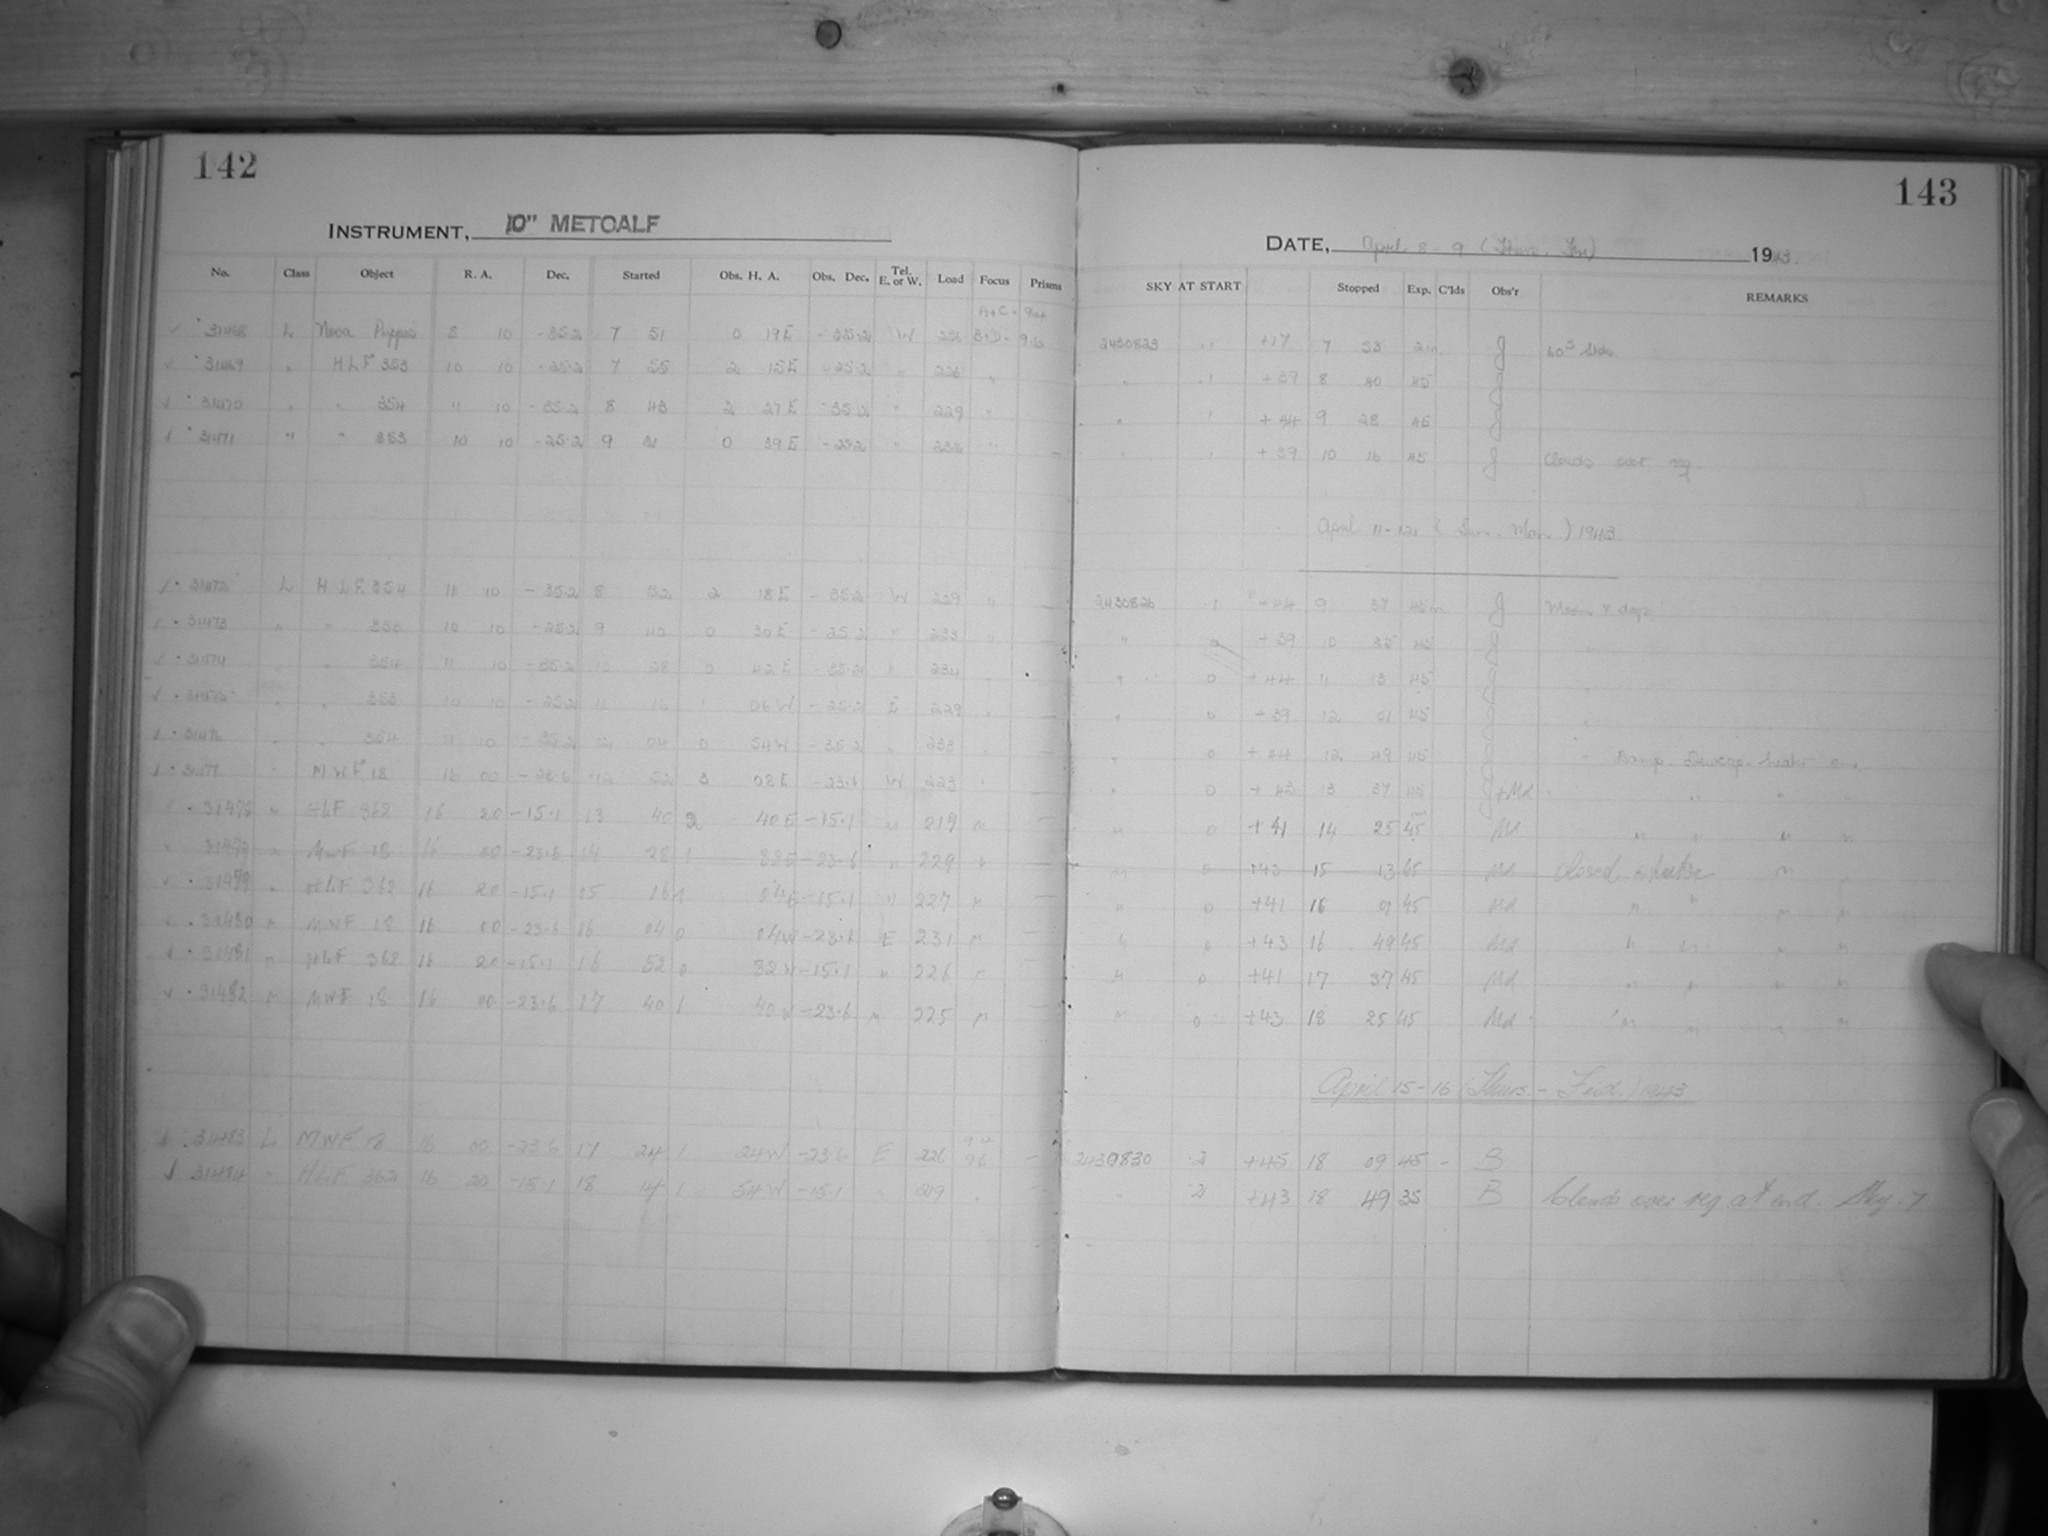 142
INSTRUMENT, 10" METCALF
No. Class Object R. A. Dec. Started Obs. H. A. Obs. Dec. Tel. E. or W. Load Focus Prisms
A+C - 9.4
31468 L Nova Puppis 8 10 -35.2 7 51 0 19E -35.2 W 226 B+D - 9.6
31469 " HLF 353 10 10 -25.2 7 55 2 15E -25.2 " 226 "
31470 " " 354 11 10 -35.2 8 43 2 27E -35.2 " 229 "
31471 " " 353 10 10 -25.2 9 31 0 39E -25.2 " 232 "
31472 L HLF 354 11 10 -35.2 8 52 2 18E -35.2 W 229 "
31473 " " 353 10 10 -25.2 9 40 0 30E -25.2 " 233 "
31474 " " 354 11 10 -35.2 10 28 0 42E -35.2 " 234 "
31475 " " 353 10 10 -25.2 11 16 1 06W -25.2 E 229 "
31476 " " 354 11 10 -35.2 12 04 0 54W -35.2 " 233 "
31477 " MWF 18 16 00 -23.6 12 52 3 08E -23.6 W 223 "
31478 " HLF 362 16 20 -15.1 13 40 2 40E -15.1 " 219 "
31479 " MWF 18 16 00 -23.6 14 28 1 -23.6 " 229 "
31479 " HLF 362 16 20 -15.1 15 16 1 04E -15.1 " 227 "
31480 " MWF 18 16 00 -23.6 16 04 0 04W -23.6 E 231 "
31481 " HLF 362 16 20 -15.1 16 52 0 32W -15.1 " 226 "
31482 " MWF 18 16 00 -23.6 17 40 1 40W -23.6 " 225 "
31483 L MWF 18 16 00 -23.6 17 24 1 24W -23.6 E 226 94 96 -
31484 " HLF 362 16 20 -15.1 18 14 1 54W -15.1 " 219 "
143
DATE, April 8-9 (Thurs. Fri) 1943.
SKY AT START Stopped Exp. C'lds Obs'r REMARKS
2430823 .1 +17 7 53 2m J 60s Stds
" .1 +39 8 40 45 J
" 1 +44 9 28 45 J
" 1 +39 10 16 45 J Clouds over reg.
April 11-12 (Sun. Mon) 1943
2430826 .1 +44 9 37 45m J Moon 7 days
" 0 +39 10 25 45 J "
" 0 +44 11 13 45 J "
" 0 +39 12 01 45 J "
" 0 +44 12 49 45 J " Damp. Dewcap heater on.
" 0 +43 13 37 45 J+Md " " "
" 0 +41 14 25 45 Md " " " "
" 0 +43 15 13 45 Md Closed shutter " "
" 0 +41 16 01 45 Md " " " "
" 0 +43 16 49 45 Md " " " "
" 0 +41 17 37 45 Md " " " "
" 0 +43 18 25 45 Md " " " "
April 15-16 (Thurs. - Frid.) 1943
2430830 .2 +45 18 09 45 - B
" .2 +43 18 49 35 B Clouds over reg. at end. Sky .7